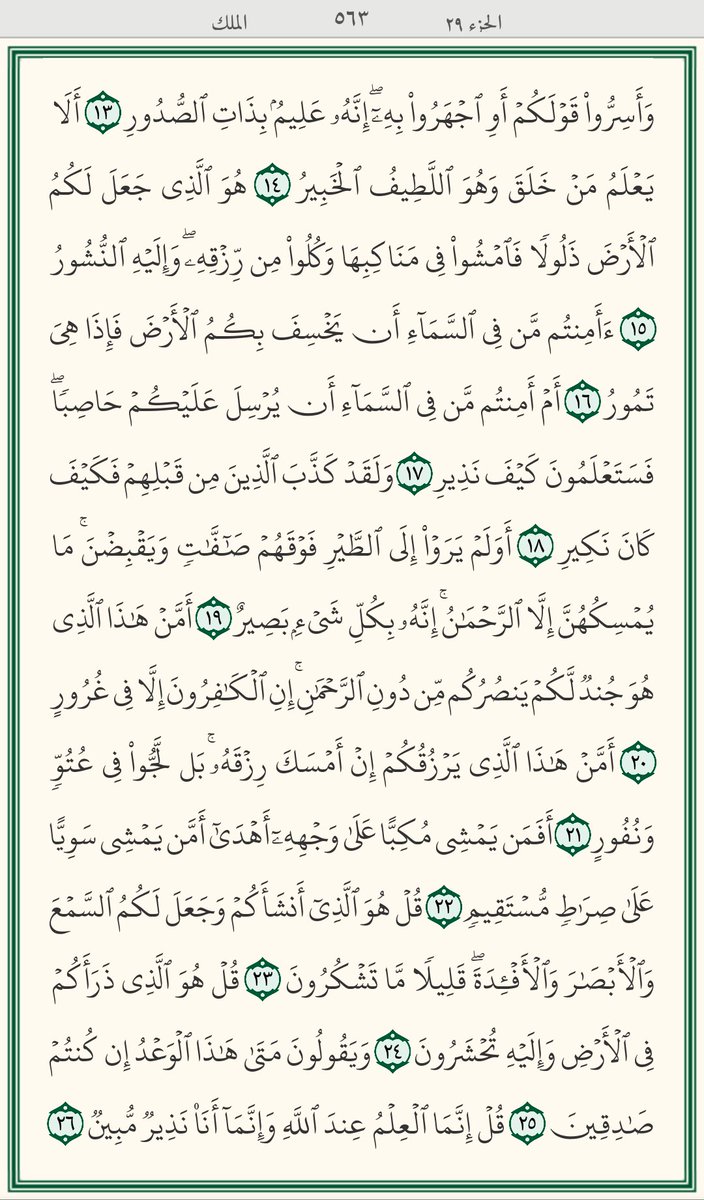 الجزء ٢٩ ٥٦٣ الملك
وَأَسِرُّوا۟ قَوْلَكُمْ أَوِ ٱجْهَرُوا۟ بِهِۦٓ ۖ إِنَّهُۥ عَلِيمٌۢ بِذَاتِ ٱلصُّدُورِ ١٣ أَلَا
يَعْلَمُ مَنْ خَلَقَ وَهُوَ ٱللَّطِيفُ ٱلْخَبِيرُ ١٤ هُوَ ٱلَّذِى جَعَلَ لَكُمُ
ٱلْأَرْضَ ذَلُولًا فَٱمْشُوا۟ فِى مَنَاكِبِهَا وَكُلُوا۟ مِن رِّزْقِهِۦ ۖ وَإِلَيْهِ ٱلنُّشُورُ
١٥ ءَأَمِنتُم مَّن فِى ٱلسَّمَآءِ أَن يَخْسِفَ بِكُمُ ٱلْأَرْضَ فَإِذَا هِىَ
تَمُورُ ١٦ أَمْ أَمِنتُم مَّن فِى ٱلسَّمَآءِ أَن يُرْسِلَ عَلَيْكُمْ حَاصِبًا ۖ
فَسَتَعْلَمُونَ كَيْفَ نَذِيرِ ١٧ وَلَقَدْ كَذَّبَ ٱلَّذِينَ مِن قَبْلِهِمْ فَكَيْفَ
كَانَ نَكِيرِ ١٨ أَوَلَمْ يَرَوْا۟ إِلَى ٱلطَّيْرِ فَوْقَهُمْ صَٰٓفَّٰتٍ وَيَقْبِضْنَ ۚ مَا
يُمْسِكُهُنَّ إِلَّا ٱلرَّحْمَٰنُ ۚ إِنَّهُۥ بِكُلِّ شَىْءٍۭ بَصِيرٌ ١٩ أَمَّنْ هَٰذَا ٱلَّذِى
هُوَ جُندٌ لَّكُمْ يَنصُرُكُم مِّن دُونِ ٱلرَّحْمَٰنِ ۚ إِنِ ٱلْكَٰفِرُونَ إِلَّا فِى غُرُورٍ
٢٠ أَمَّنْ هَٰذَا ٱلَّذِى يَرْزُقُكُمْ إِنْ أَمْسَكَ رِزْقَهُۥ ۚ بَل لَّجُّوا۟ فِى عُتُوٍّ
وَنُفُورٍ ٢١ أَفَمَن يَمْشِى مُكِبًّا عَلَىٰ وَجْهِهِۦٓ أَهْدَىٰٓ أَمَّن يَمْشِى سَوِيًّا
عَلَىٰ صِرَٰطٍ مُّسْتَقِيمٍ ٢٢ قُلْ هُوَ ٱلَّذِىٓ أَنشَأَكُمْ وَجَعَلَ لَكُمُ ٱلسَّمْعَ
وَٱلْأَبْصَٰرَ وَٱلْأَفْـِٔدَةَ ۖ قَلِيلًا مَّا تَشْكُرُونَ ٢٣ قُلْ هُوَ ٱلَّذِى ذَرَأَكُمْ
فِى ٱلْأَرْضِ وَإِلَيْهِ تُحْشَرُونَ ٢٤ وَيَقُولُونَ مَتَىٰ هَٰذَا ٱلْوَعْدُ إِن كُنتُمْ
صَٰدِقِينَ ٢٥ قُلْ إِنَّمَا ٱلْعِلْمُ عِندَ ٱللَّهِ وَإِنَّمَآ أَنَا۠ نَذِيرٌ مُّبِينٌ ٢٦